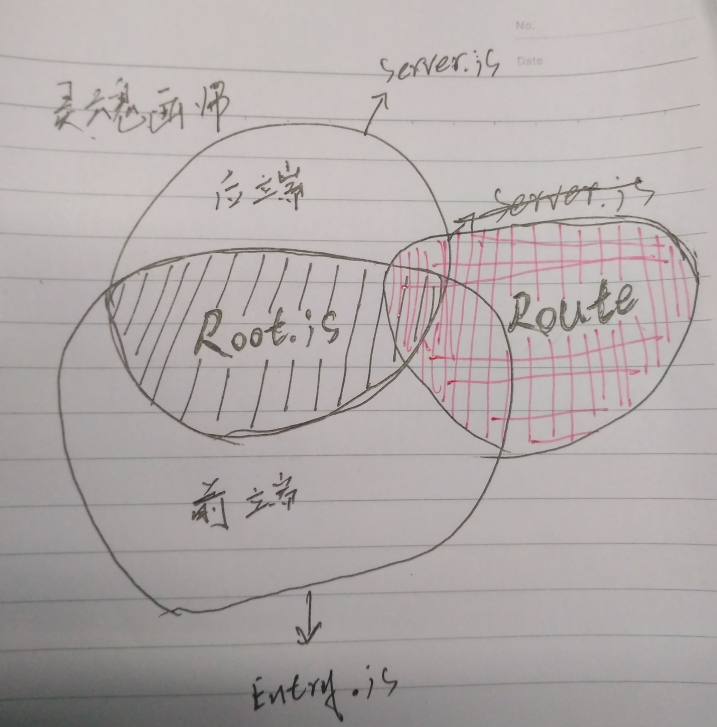 No.
Date
server.js
灵魂画师
后端
server.js
Root.js
Route
前端
Entry.js